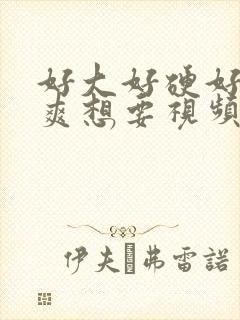 好大好硬好
爽想要視頻
伊夫·弗雷諾